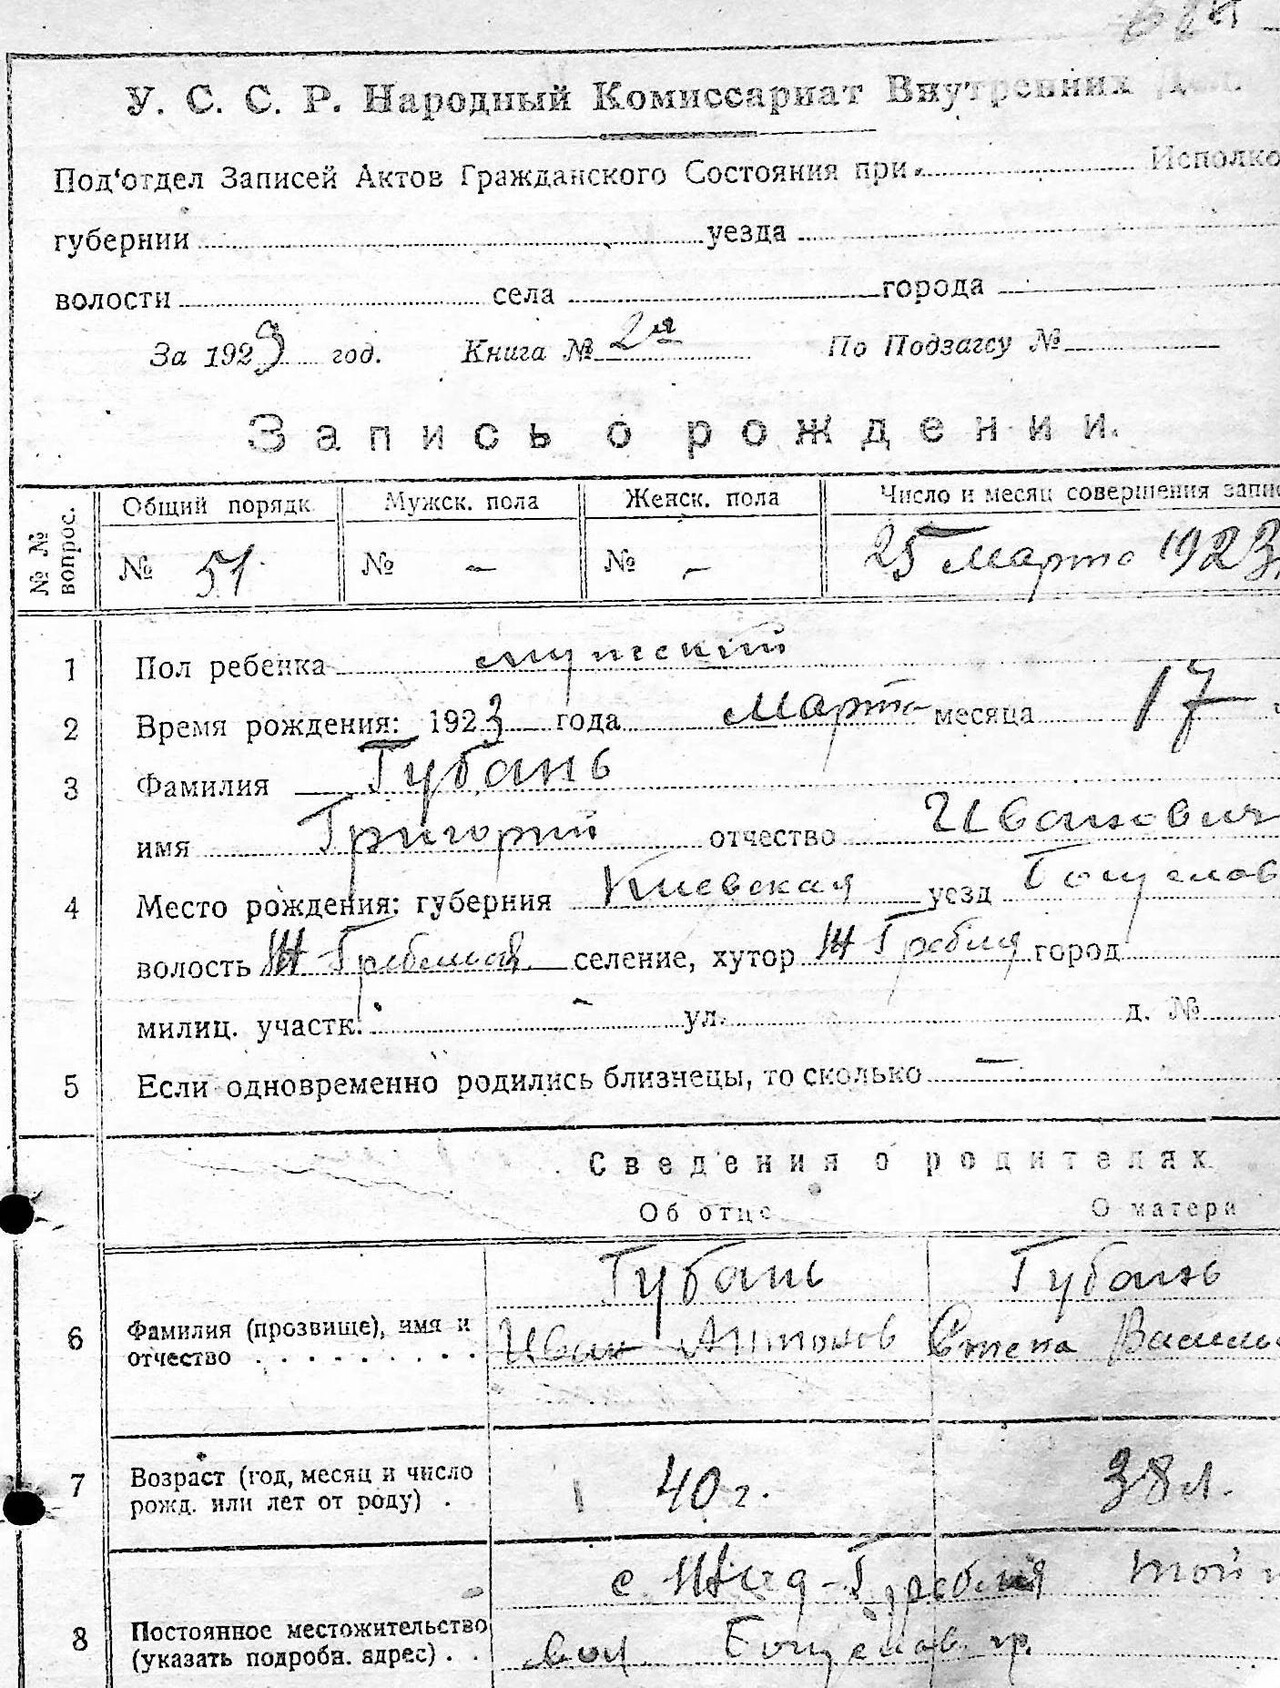 У. С. С. Р. Народный Комиссариат Внутренних Дел.
Под‘отдел Записей Актов Гражданского Состояния при Исполко
губернии уезда
волости села города
За 1923 год. Книга № 2я По Подзагсу №
Запись о рождении.
№ № вопрос.
Общий порядк. Мужск. пола Женск. пола Число и месяц совершения запис
№ 51. № – № – 25 марта 1923
1 Пол ребенка мужский
2 Время рождения: 1923 года Марта месяца 17
3 Фамилия Губань
имя Григорий отчество Иванович
4 Место рождения: губерния Киевская уезд Богуслав
волость Ж-Гребельная селение, хутор Ж Гребля город
милиц. участк. – ул. д. №
5 Если одновременно родились близнецы, то сколько –
Сведения о родителях
Об отце О матери
Губань Губань
6 Фамилия (прозвище), имя и Иван Антонов Степа Василь
отчество
7 Возраст (год, месяц и число 40 г. 38 л.
рожд. или лет от роду)
с. Жид-Гребля той
8 Постоянное местожительство вол Богуслав.
(указать подробн. адрес)